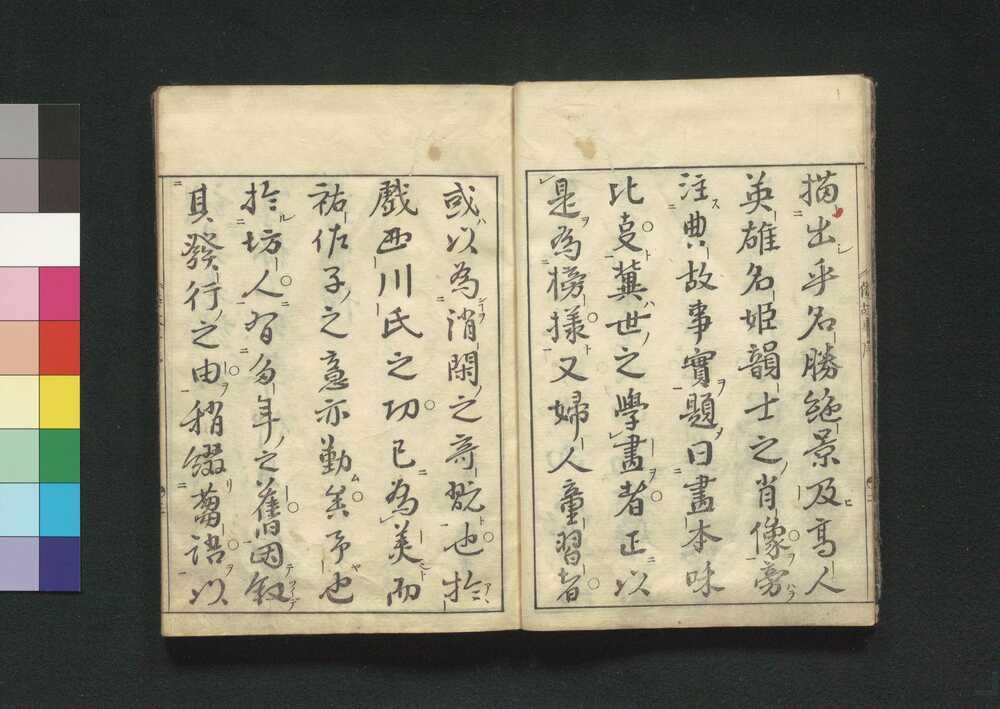 描出乎名勝絶景及高人
英雄名姫韻士之肖像旁
注典故事實題曰畫本味
比冀世之學畫者正以
是為榜様又婦人童習者
或以為消閑之奇翫也於
戯西川氏之功已為美而
祐佐子之意亦勤矣予也
於坊人有多年之舊因叙
其發行之由稍綴蕪語以